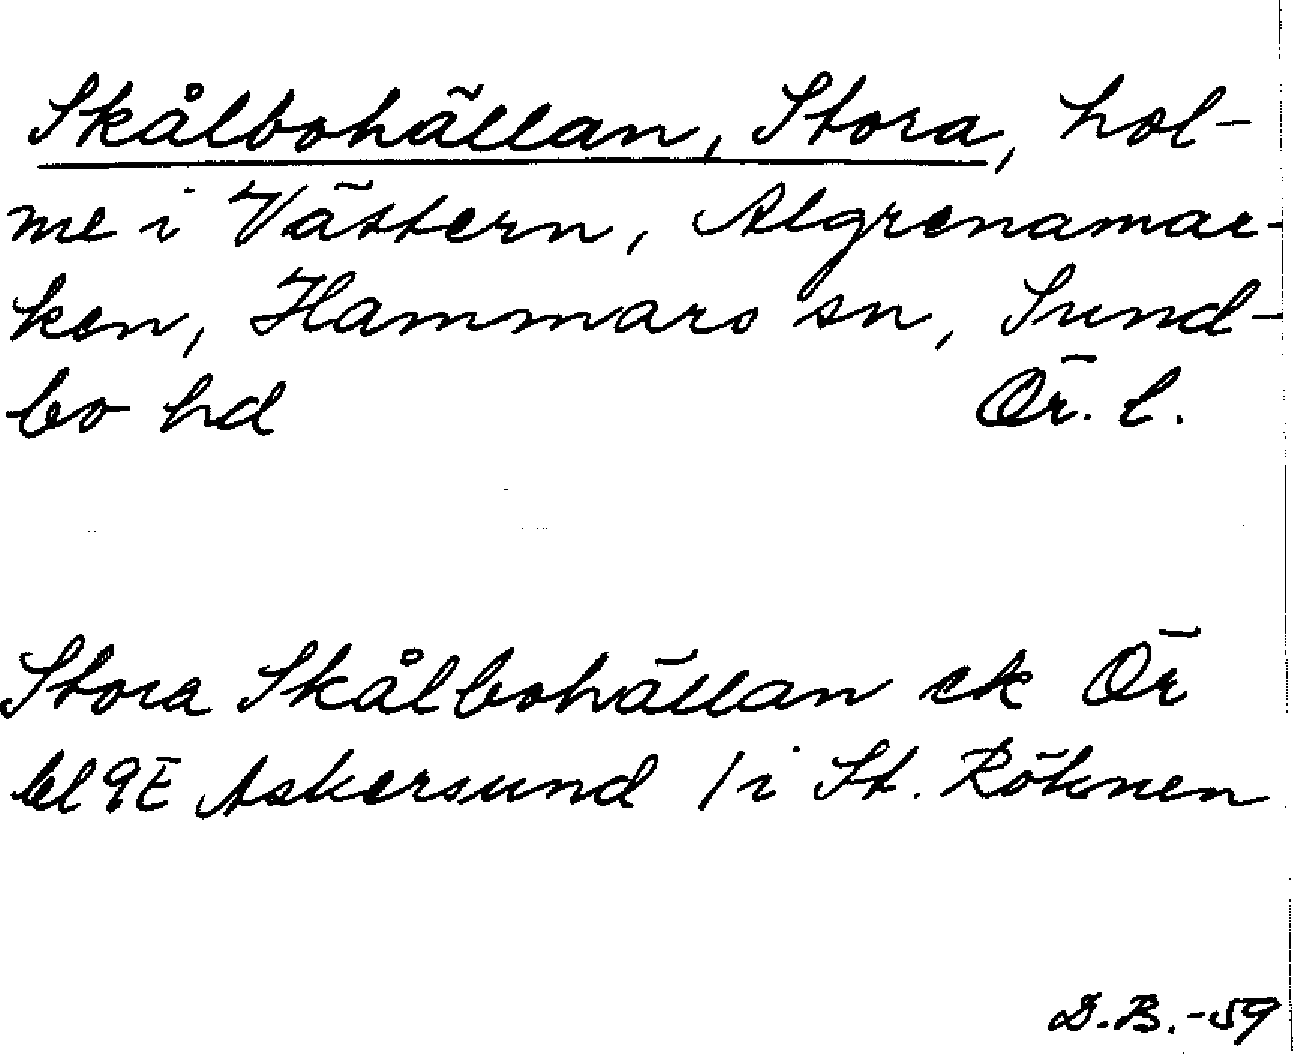 Skålbohällan, Stora, hol-
me i Vättern, Algrenamar-
ken, Hammars sn, Sund-
bo hd Ör. l.
Stora Skålbohällan ek Ör
bl 9E Askersund 1 i St. Röknen
D.B.-59